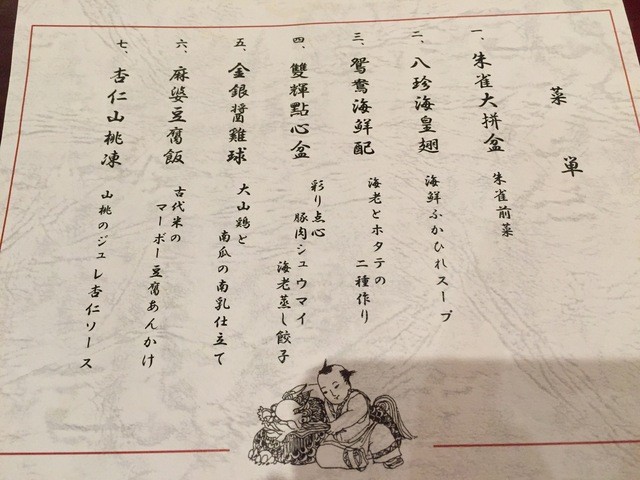 菜単
一、朱雀大拼盆
朱雀前菜
二、八珍海皇翅
海鮮ふかひれスープ
三、鴛鴦海鮮配
海老とホタテの
二種作り
四、雙輝點心盆
彩り点心
豚肉シュウマイ
海老蒸し餃子
五、金銀醬雞球
大山鶏と
南瓜の南乳仕立て
六、麻婆豆腐飯
古代米の
マーボー豆腐あんかけ
七、杏仁山桃凍
山桃のジュレ杏仁ソース